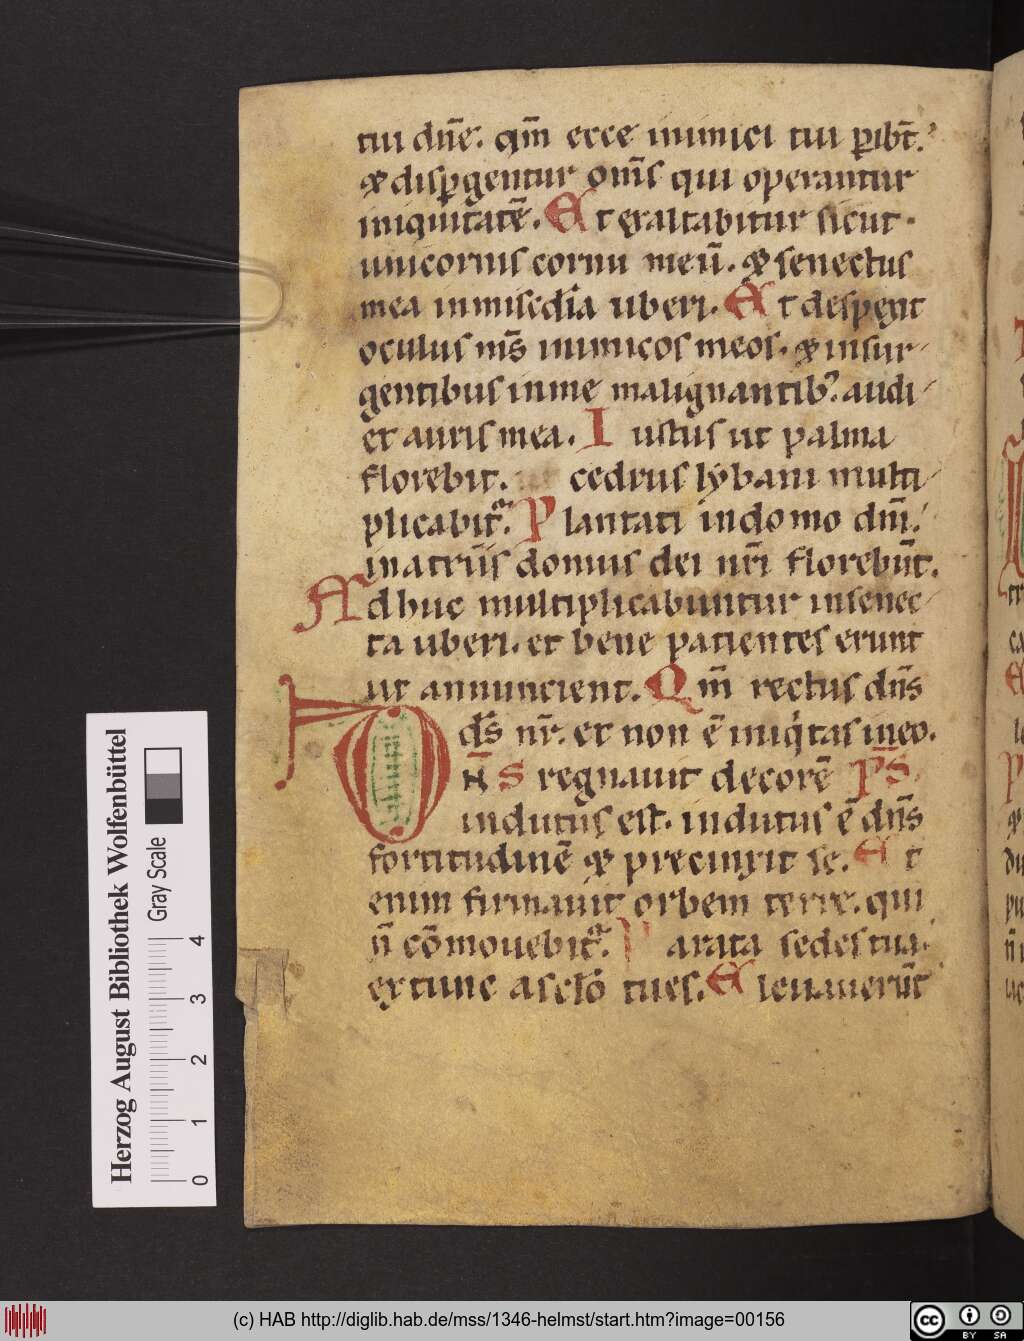 tui dn̄e. qm̄ ecce inimici tui ꝑibt̄.
⁊ disꝑgentur om̄s qui operantur
iniquitatē. Et exaltabitur sicut
unicornis cornu meū. ⁊ senectus
mea in misc̄dia uberi. Et despexit
oculus m̄s inimicos meos. ⁊ insur-
gentibus in me malignantib; audi-
et auris mea. Iustus ut palma
florebit. cedrus lybani multi-
plicabit᷑. Plantati in domo dn̄i.
in atriis domus dei nr̄i florebūt.
Adhuc multiplicabuntur in senec-
ta uberi. et bene patientes erunt
ut annuncient. Qm̄ rectus dn̄s
ds̄ nr̄. et non ē iniqͥtas in eo.
DN̄S regnauit decorē PS̄
indutus est. indutus ē dn̄s
fortitudinē ⁊ precinxit se. Et
enim firmauit orbem terre. qui
n̄ cōmouebit᷑. Parata sedes tua.
ex tunc a sclo᷑ tu es. Eleuauerūt
Herzog August Bibliothek Wolfenbüttel
Gray Scale
0 1 2 3 4
(c) HAB http://diglib.hab.de/mss/1346-helmst/start.htm?image=00156
cc BY SA